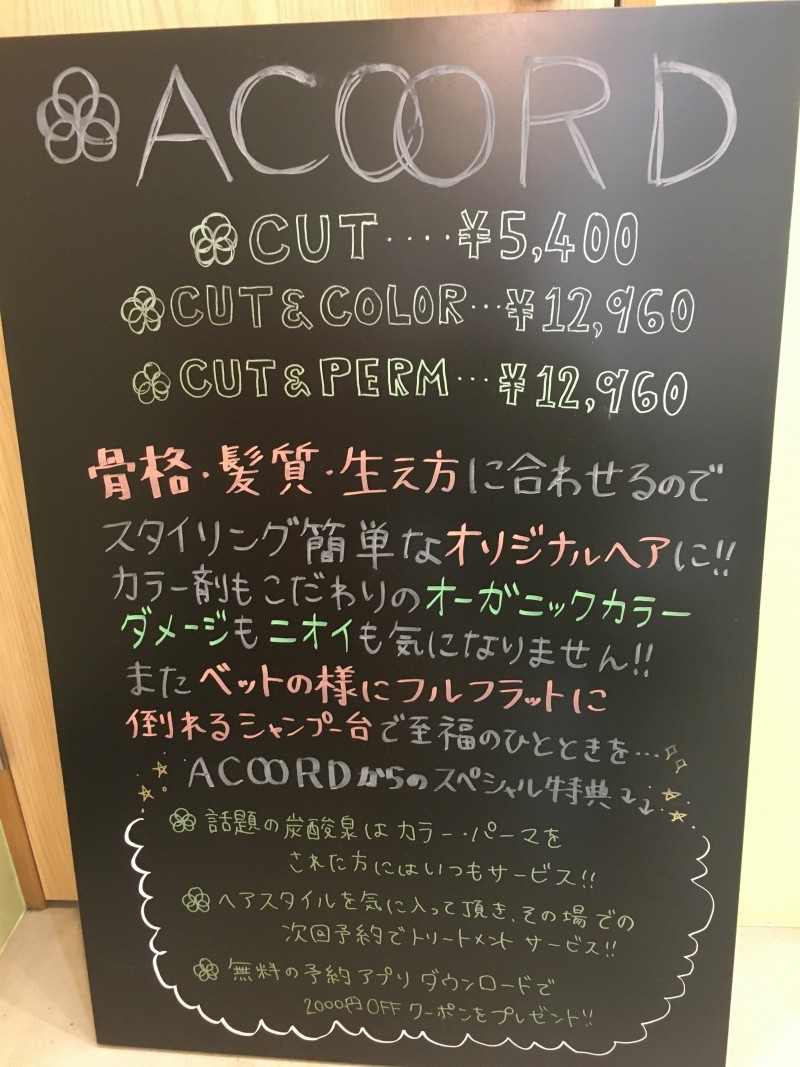 ACOORD
CUT....¥5,400
CUT&COLOR...¥12,960
CUT&PERM...¥12,960
骨格・髪質・生え方に合わせるので
スタイリング簡単なオリジナルヘアに!!
カラー剤もこだわりのオーガニックカラー
ダメージもニオイも気になりません!!
またベットの様にフルフラットに
倒れるシャンプー台で至福のひとときを…
ACOORDからのスペシャル特典
話題の炭酸泉はカラー・パーマを
された方にはいつもサービス!!
ヘアスタイルを気に入って頂き、その場での
次回予約でトリートメントサービス!!
無料の予約アプリダウンロードで
2000円OFFクーポンをプレゼント!!